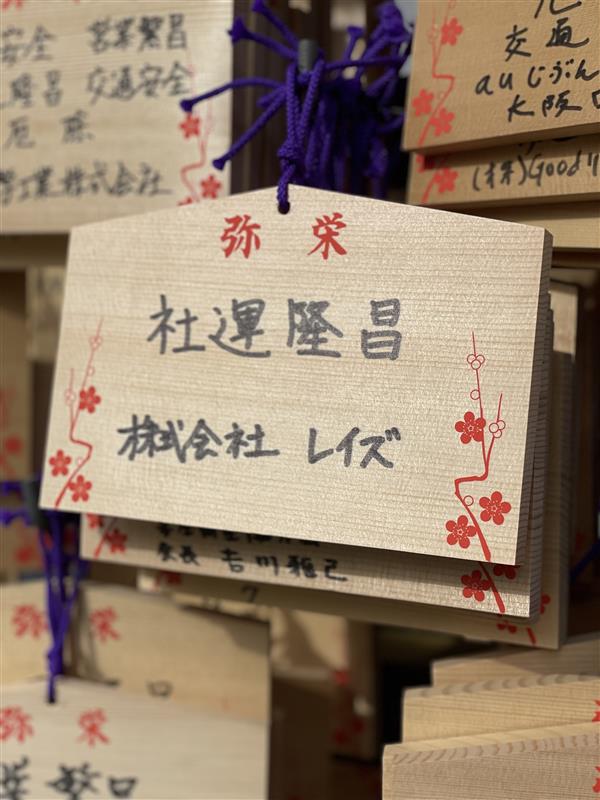 安全 営業繁昌
隆昌 交通安全
厄除
工業株式会社
交通
auじぶん
大阪
(株)Good
弥栄
社運隆昌
株式会社 レイズ
会長 吉川雅己
弥栄
弥栄